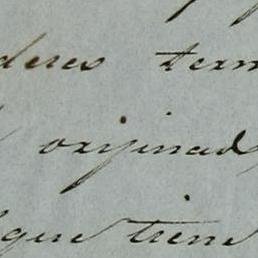 deres term
originad
que tiene